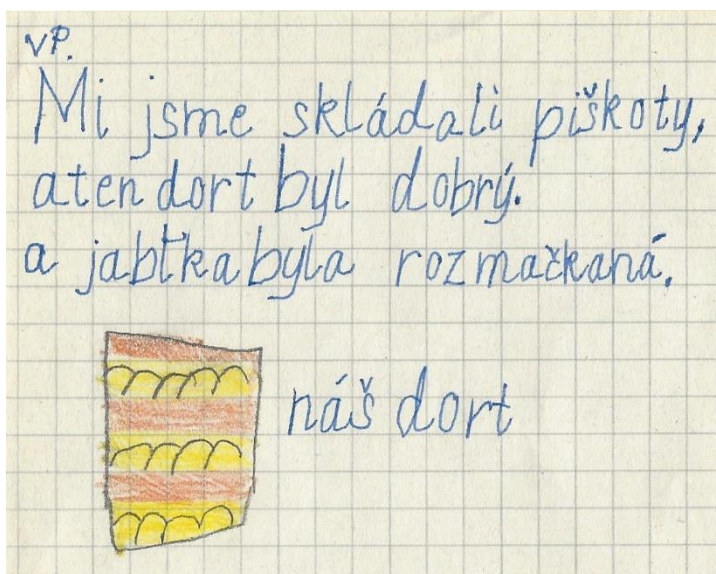 VP.
Mi jsme skládali piškoty,
aten dort byl dobrý.
a jabtka byla rozmačkaná.
náš dort